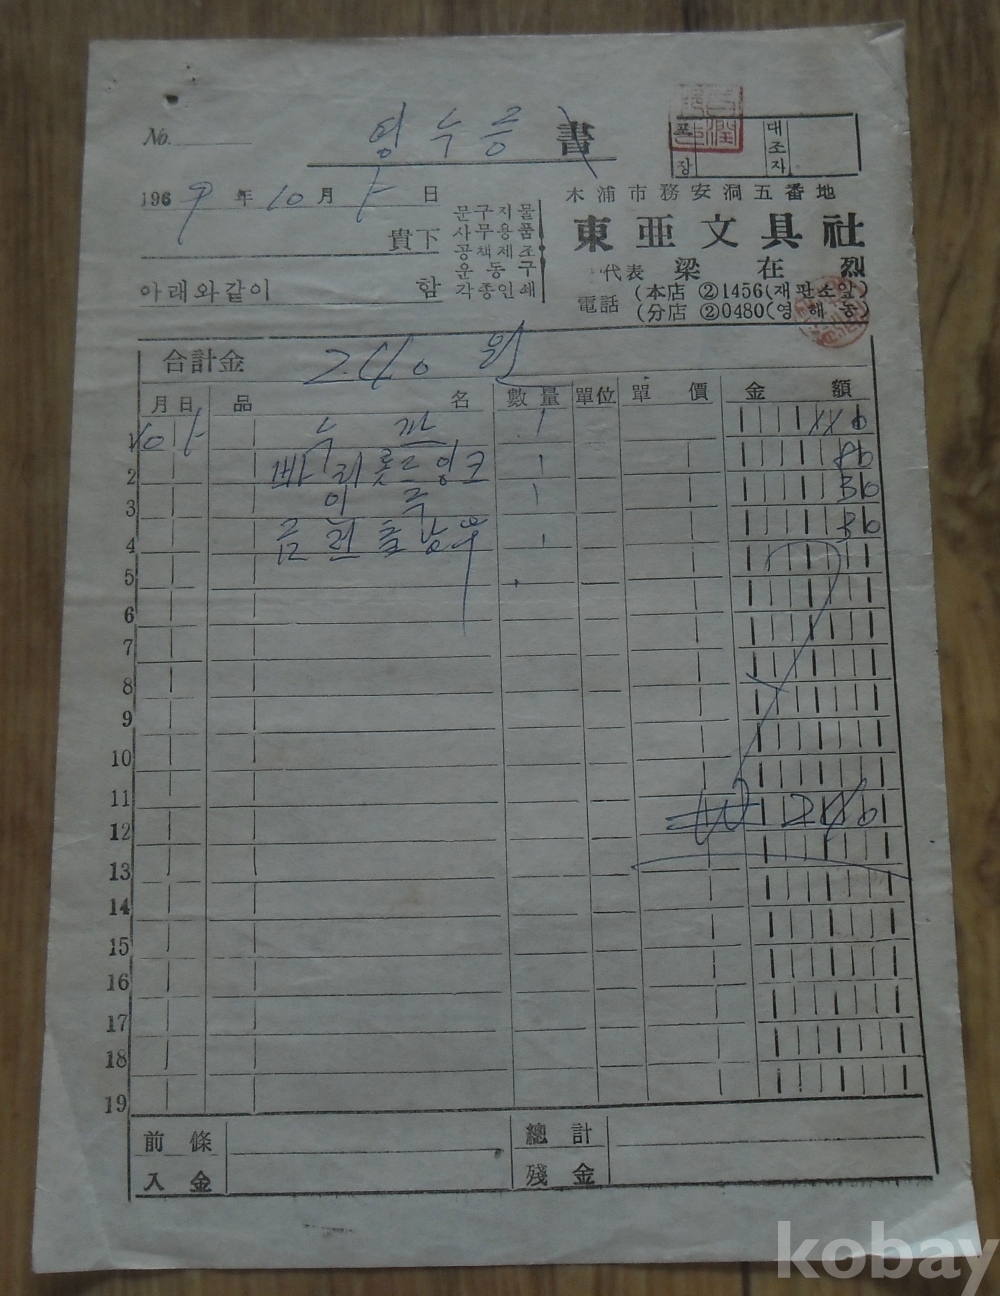 No.
영수증 書
대조자
1969 年 10 月 5 日
木浦市務安洞五番地
貴下
문구지물
사무용품
공책제조
운동구
각종인쇄
東亜文具社
代表 梁在烈
아래와같이 함
電話 (本店 ②1456(재판소앞)
(分店 ②0480(영해동)
合計金 240원
月日 品名 數量 單位 單價 金額
1 10 5 1
2 빠이롯드잉크 1 80
3 1 30
4 1
5
6
7
8
9
10
11
12 ₩ 240
13
14
15
16
17
18
19
前條 總計
入金 殘金
kobay